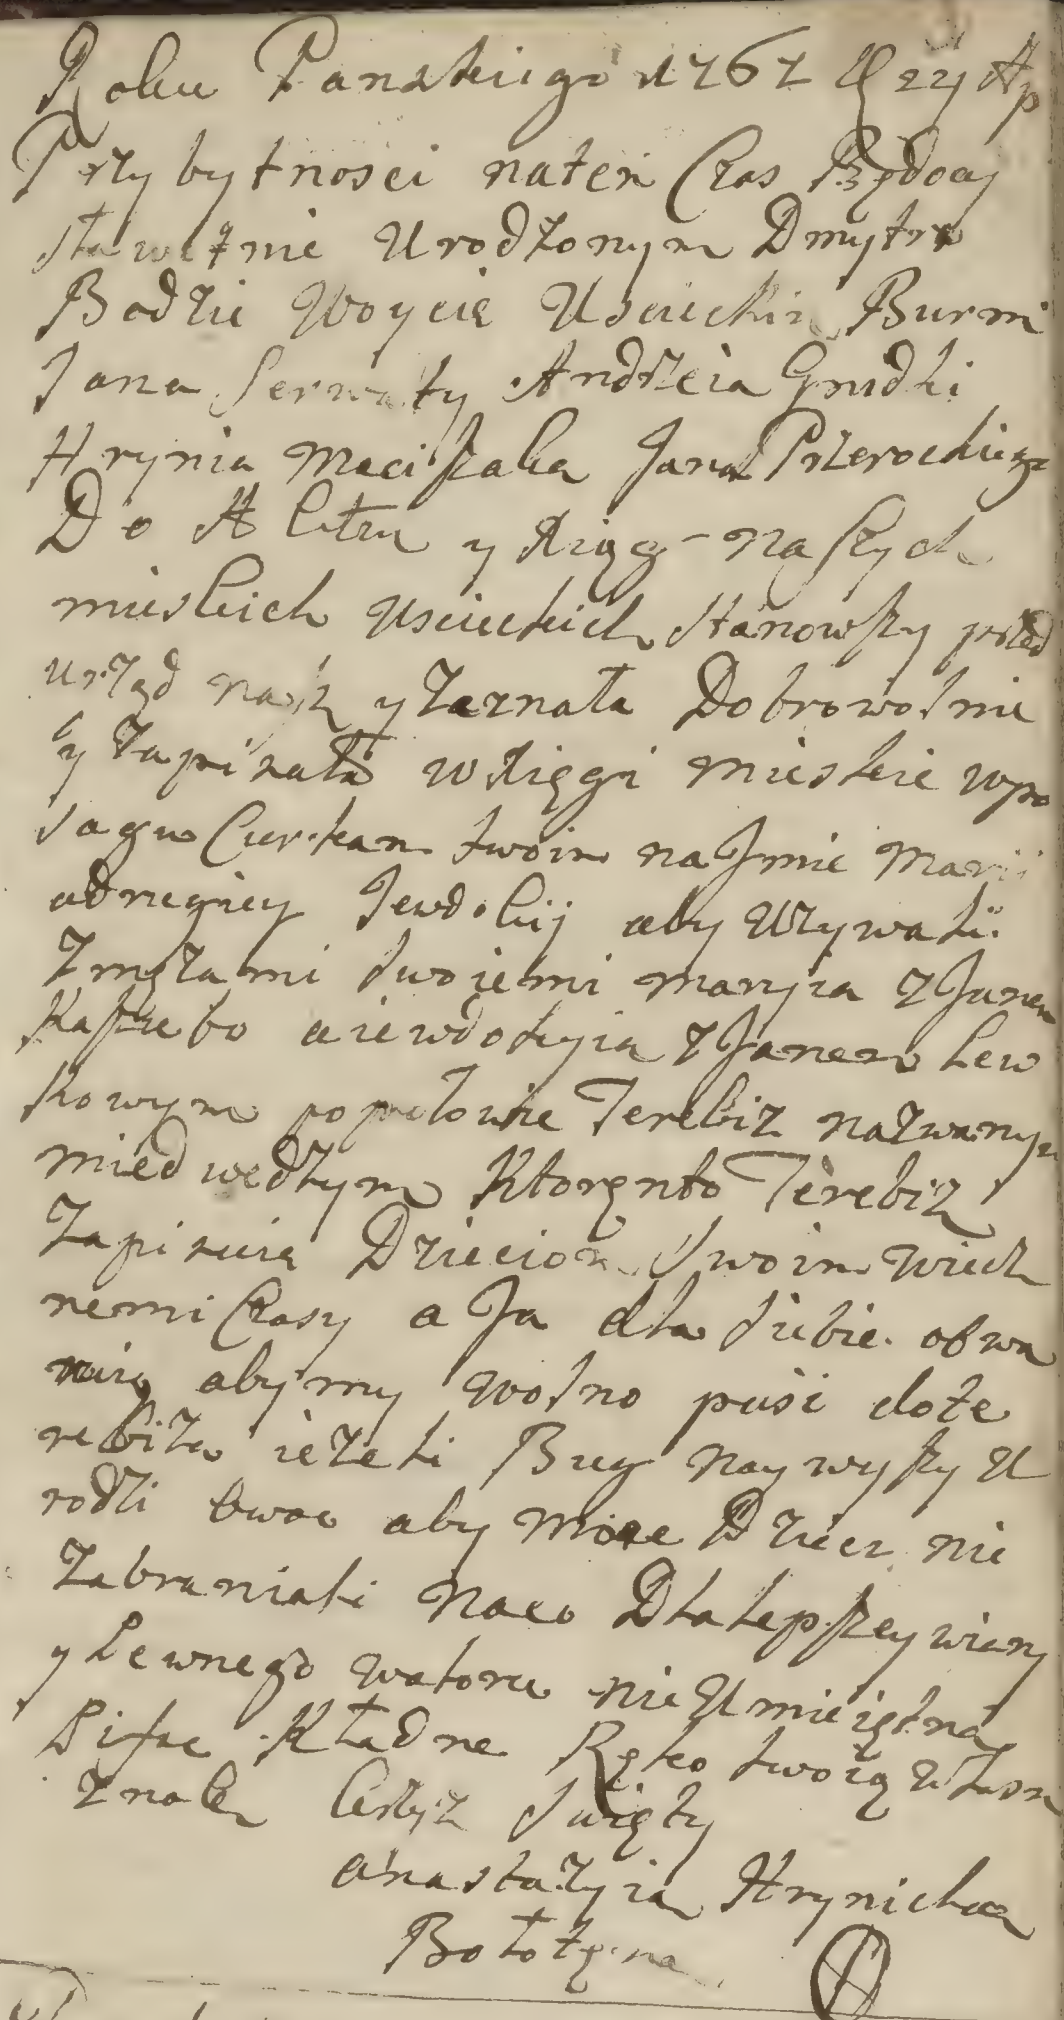 Roku Panskiego 1767 Ap
Przy bytnosci naten Czas Będocy
sławetnie Urodzonym Dmytr
Bodzie Woycie Uscieckim Burmi
Jana Serwaty Andrzeia Gnidki
Hrynia Maciszaka Jana Przerockiego
Do Aktu y Xiąg naszych
mieskich Usciechich Stanowszy przed
urząd nasz y zeznała Dobrowolnie
y zapisała w Xięgi mieskie wpo
sagu Curkam swoim na Jmie Marii
a drugiey Jewdokij aby Uzywali
z męzami swoiemi Maryia z Janem
Kaszubo a iewdokyia z Janem Lew
kowym po połowie Terebiz nazwanym
miedwedzym Ktorento Terebiz
Zapisuię Dzieciom swoim wiecz
nemi Czasy a Ja dla siebie obwa
ruię abymy wolno puśi do Te
rebiza ieżeli Bug naywyszy U
rodzi owoc aby mnie Dzieci nie
Zabraniali naco Dla lepszey wiary
y Pewnego waloru nie Umieiętna
Pisac Kładne Ręko swoią własn
znak Krzyz Swięty
anastazyia Hrynicha